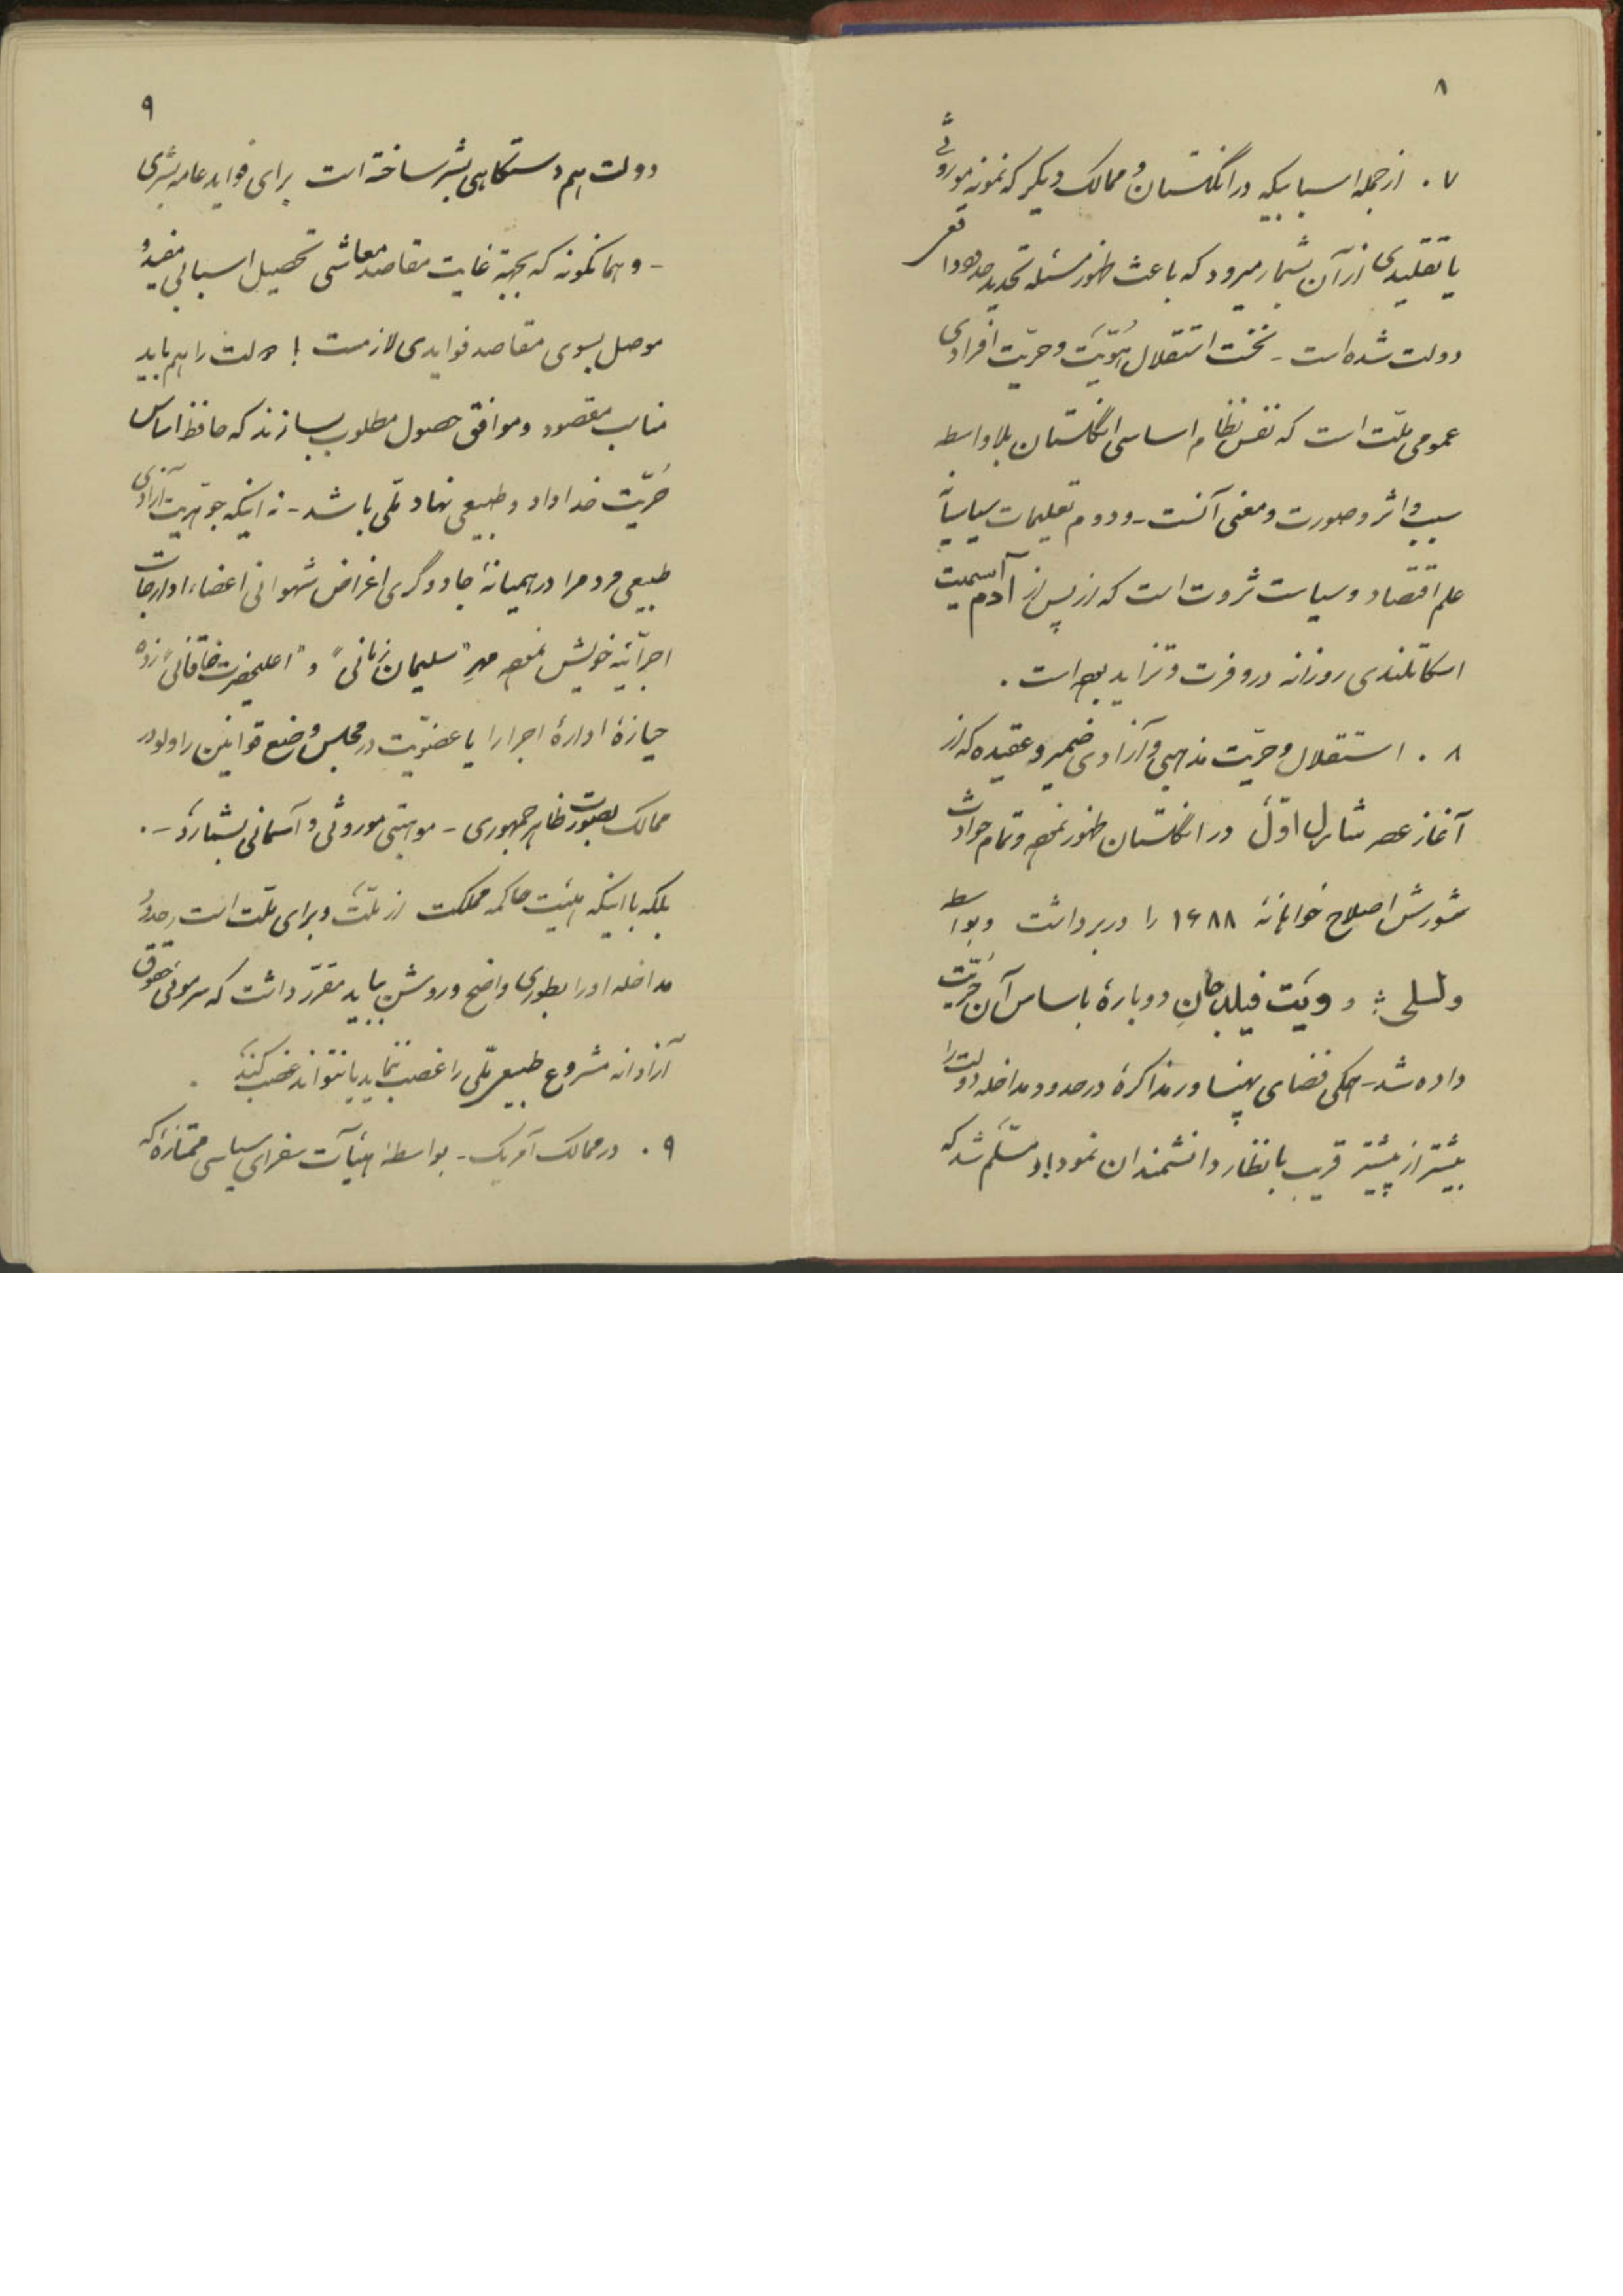 ۸
۷ . از جمله اسبابیکه در انگلستان و ممالک دیگر که نمونه موروثی
یا تقلیدی از آن بشمار میرود که باعث ظهور مسئله تحدید حدود
دولت شده است - نخست استقلال هُوّیت و حریّت افرادی
عمومی ملّت است که نفس نظام اساسی انگلستان بلاواسطه
سبب و اثر و صورت و معنی آنست - و دوم تعلیمات سیاسیانه
علم اقتصاد و سیاست ثروت است که از پس از آدم اسمیت
اسکاتلندی روزانه در وفرت و تزاید بوده است .
۸ . استقلال و حرّیت مذهبی و آزادی ضمیر و عقیده که از
آغاز عصر شارل اوّل در انگلستان ظهور نموده و تمام حوادث
شورش اصلاح خواهانهٔ ۱۶۸۸ را در بر داشت و بواسطه
ولسلی و ویَت فیلد جانِ دوبارهٔ باساس آن حُرّیت
داده شد - همگی فضای پهناور مذاکرهٔ در حدود مداخله دولت را
بیشتر از پیشتر قریب بانظار دانشمندان نمود و مسلّم شد که
۹
دولت هم دستگاهی بشر ساخته است برای فواید عامه بشری
- و همانگونه که بجهة غایت مقاصد معاشی تحصیل اسبابی مفید و
موصل بسوی مقاصد فوایدی لازمست ! دولت را هم باید
مناسب مقصود و موافق حصول مطلوب بسازند که حافظ اساس
حُرّیت خداداد و طبیعی نهاد ملّی باشد - نه اینکه جوهریت آزادی
طبیعی مردم را در همیانهٔ جادوگری اغراض شهوانی اعضاء ادارجات
اجرائیه خویش نموده مهرِ "سلیمان زمانی" و "اعلیحضرت خاقانی" زده
حیازهٔ ادارهٔ اجرا را یا عضوّیت در مجلس وضع قوانین را ولو در
ممالک بصورت ظاهر جمهوری - موهبتی موروثی و آسمانی بشمارند - .
بلکه با اینکه هیئت حاکمه مملکت از ملّت و برای ملّت است حدود
مداخله او را بطوری واضح و روشن باید مقرّر داشت که سر موئی حقوق
آزادانه مشروع طبیعی ملّی را غصب ننماید یا نتواند غصب کند
۹ . در ممالک آمریک - بواسطهٔ هیئآت سفرای سیاسی ممتازهٔ که